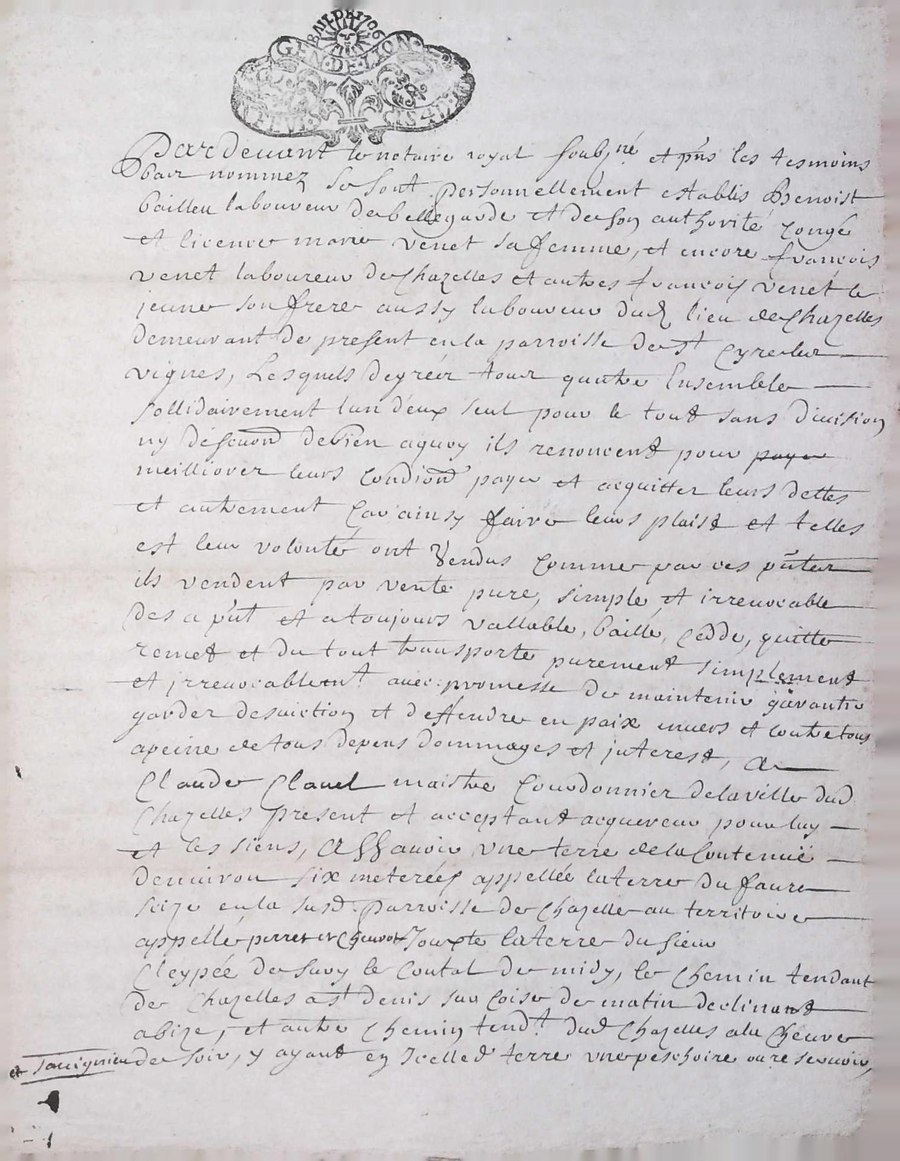 GEN·DE·LION
Par devant le notaire royal soubz.né et pns les tesmoins
bas nommez se sont personnellement establis Benoist
bailleu laboureur de bellegarde et de son authorité congé
et licence marie venet sa femme, et encore francois
venet laboureur de Chazelles et autres francois venet le
jeune son frere aussy laboureur dud. lieu de Chazelles
demeurant de present en la parroisse de St Cyre les
vignes, Lesquels de grées tous quatre Ensemble
sollidairement lun deux seul pour le tout sans division
ny de bien aquoy ils renoncent pour paye
meilliorer leurs condions payer et acquitter leurs dettes
et autrement Car ainsy faire leurs plaist et telles
est leur volonté ont Vendus comme par ces
ils vendent par vente pure, simple, et irrevocable
des a pnt et atoujours vallable, baille, cedde, quitte
remet et du tout transporte purement simplement
et jrrevocablemt avec promesse de maintenir garantir
garder desuiction et deffendre en paix envers et contre tous
apeine de tous depens dommages et jnterest, A
Claude Clavel maistre Courdonnier de la ville dud
Chazelles present et acceptant acquereur pour luy
et les siens, Assavoir une terre de la Contenüe
denviron six meterées appellée la terre du faure
seize en la susd. parroisse de Chazelle au territoire
appellé perret et Jouxte la terre du sieur
Cleypée de Sury le Coutal de midy, le chemin tendant
de Chazelles a St denis sur Coise de matin declinant
abize, et autre Chemin tendt. dud Chazelles a la
et Savignieu de soir, y ayant en Jcelled terre une peschoire ou reservoir,